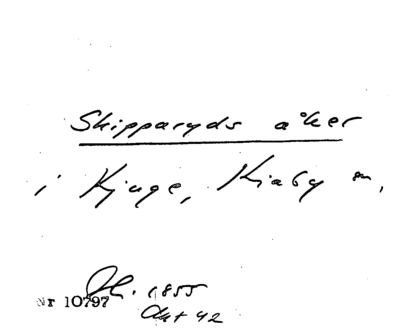 Skipparyds åker
i Kjuge, Kiaby sn,
1855
Nr 10797
Akt 42